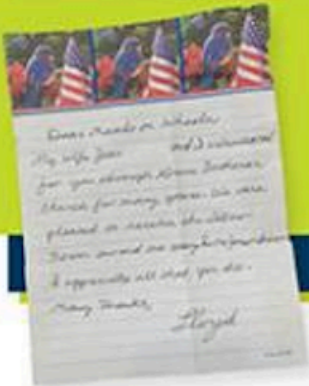 Dear Meals on Wheels
My wife Jean and I volunteered
for you through Grace Lutheran
Church for many years. We are
pleased to receive the
and our neighbors
& appreciate all that you do.
Many Thanks,
Lloyd